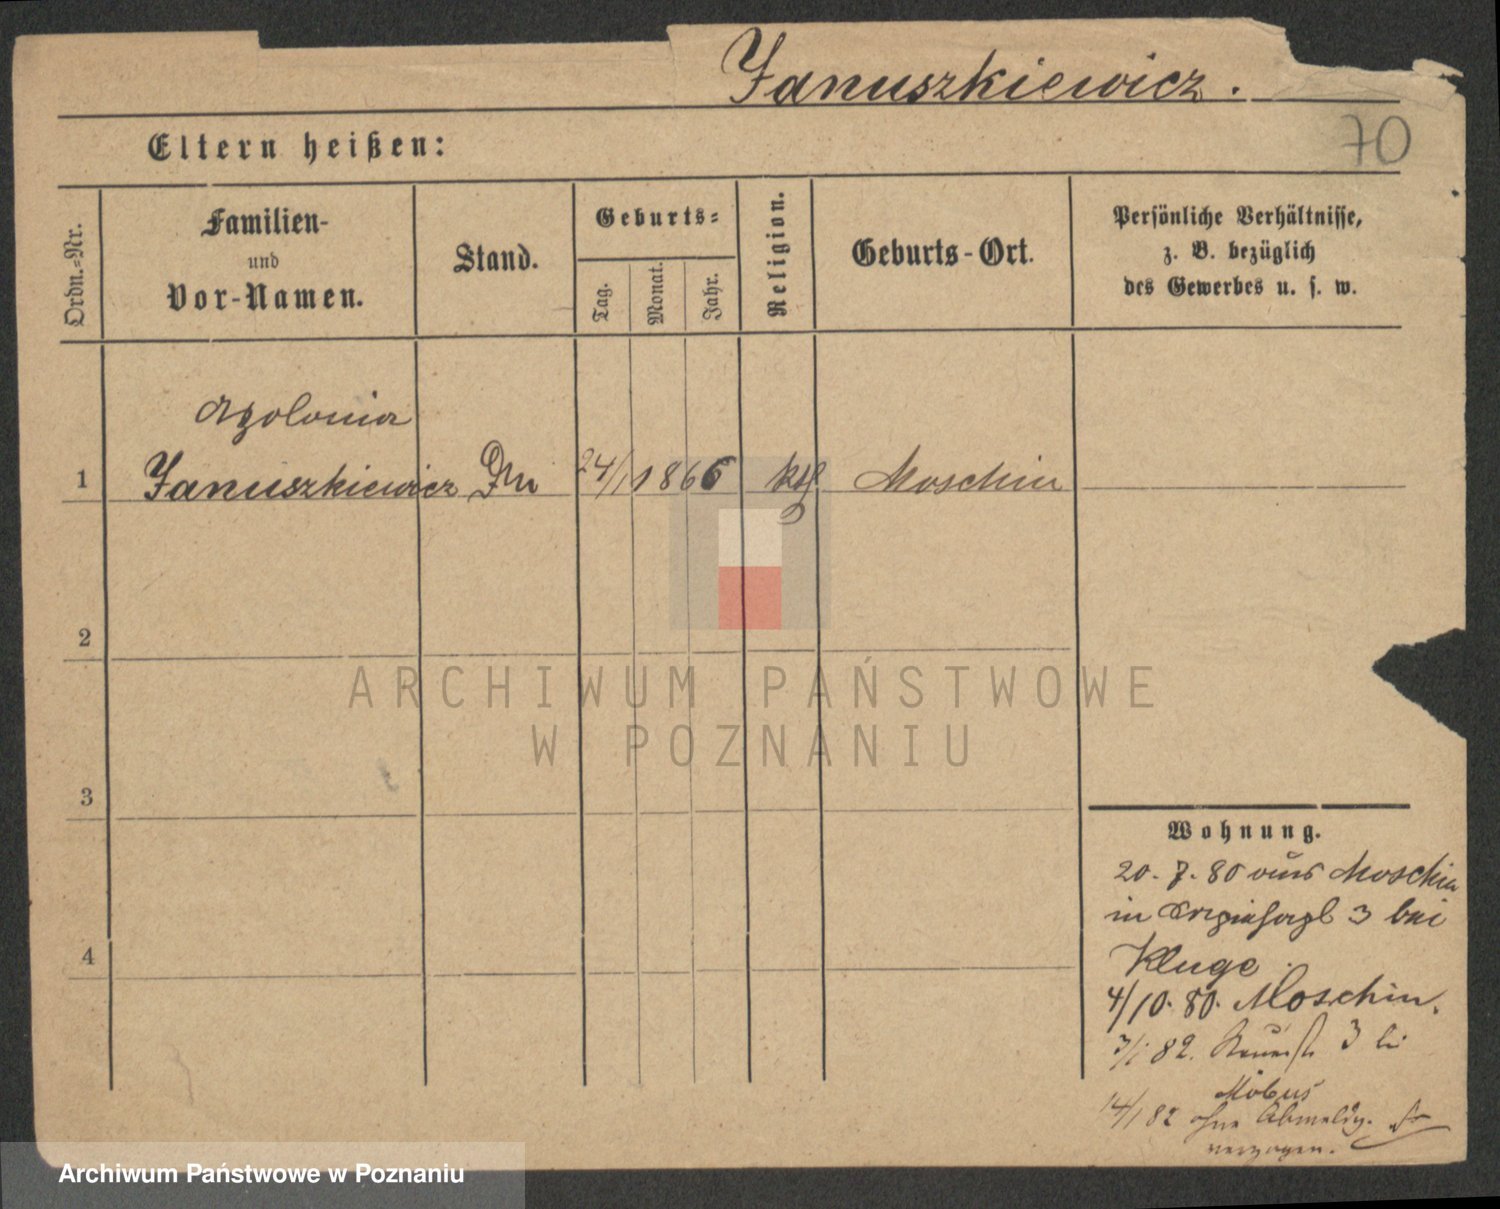 Januszkiewicz.
70
Eltern heißen:
Ordn.-Nr.
Familien-
und
Vor-Namen.
Stand.
Geburts-
Tag.
Monat.
Jahr.
Religion.
Geburts-Ort.
Persönliche Verhältnisse,
z. B. bezüglich
des Gewerbes u. s. w.
Apolonia
1 Januszkiewicz 24/1 1866 kth Moschin
2
ARCHIWUM PAŃSTWOWE
W POZNANIU
3
4
Wohnung.
20. 7. 80 aus Moschin
in 3 bei
Kluge.
4/10. 80. Moschin.
3/1 82. 3 bei
Möbus
14/1 82 ohne Abmeldg.
verzogen.
Archiwum Państwowe w Poznaniu